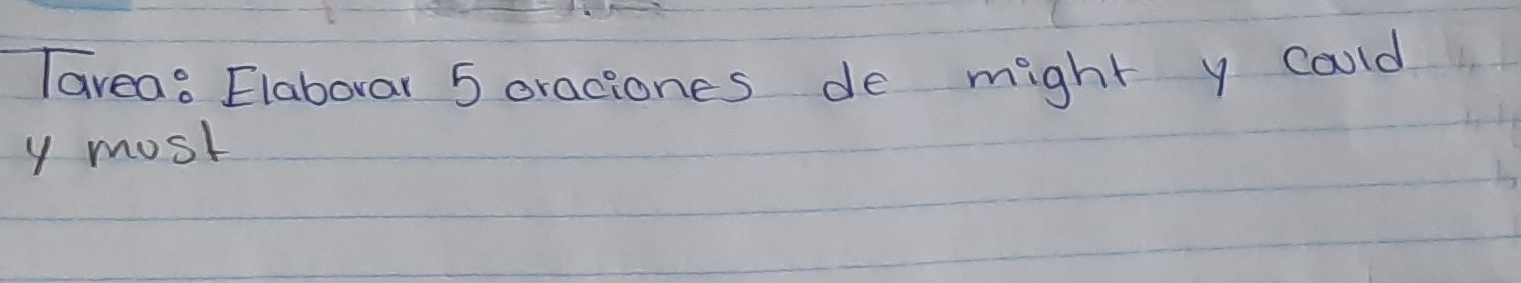 Tarea: Elaborar 5 oraciones de might y could
y must